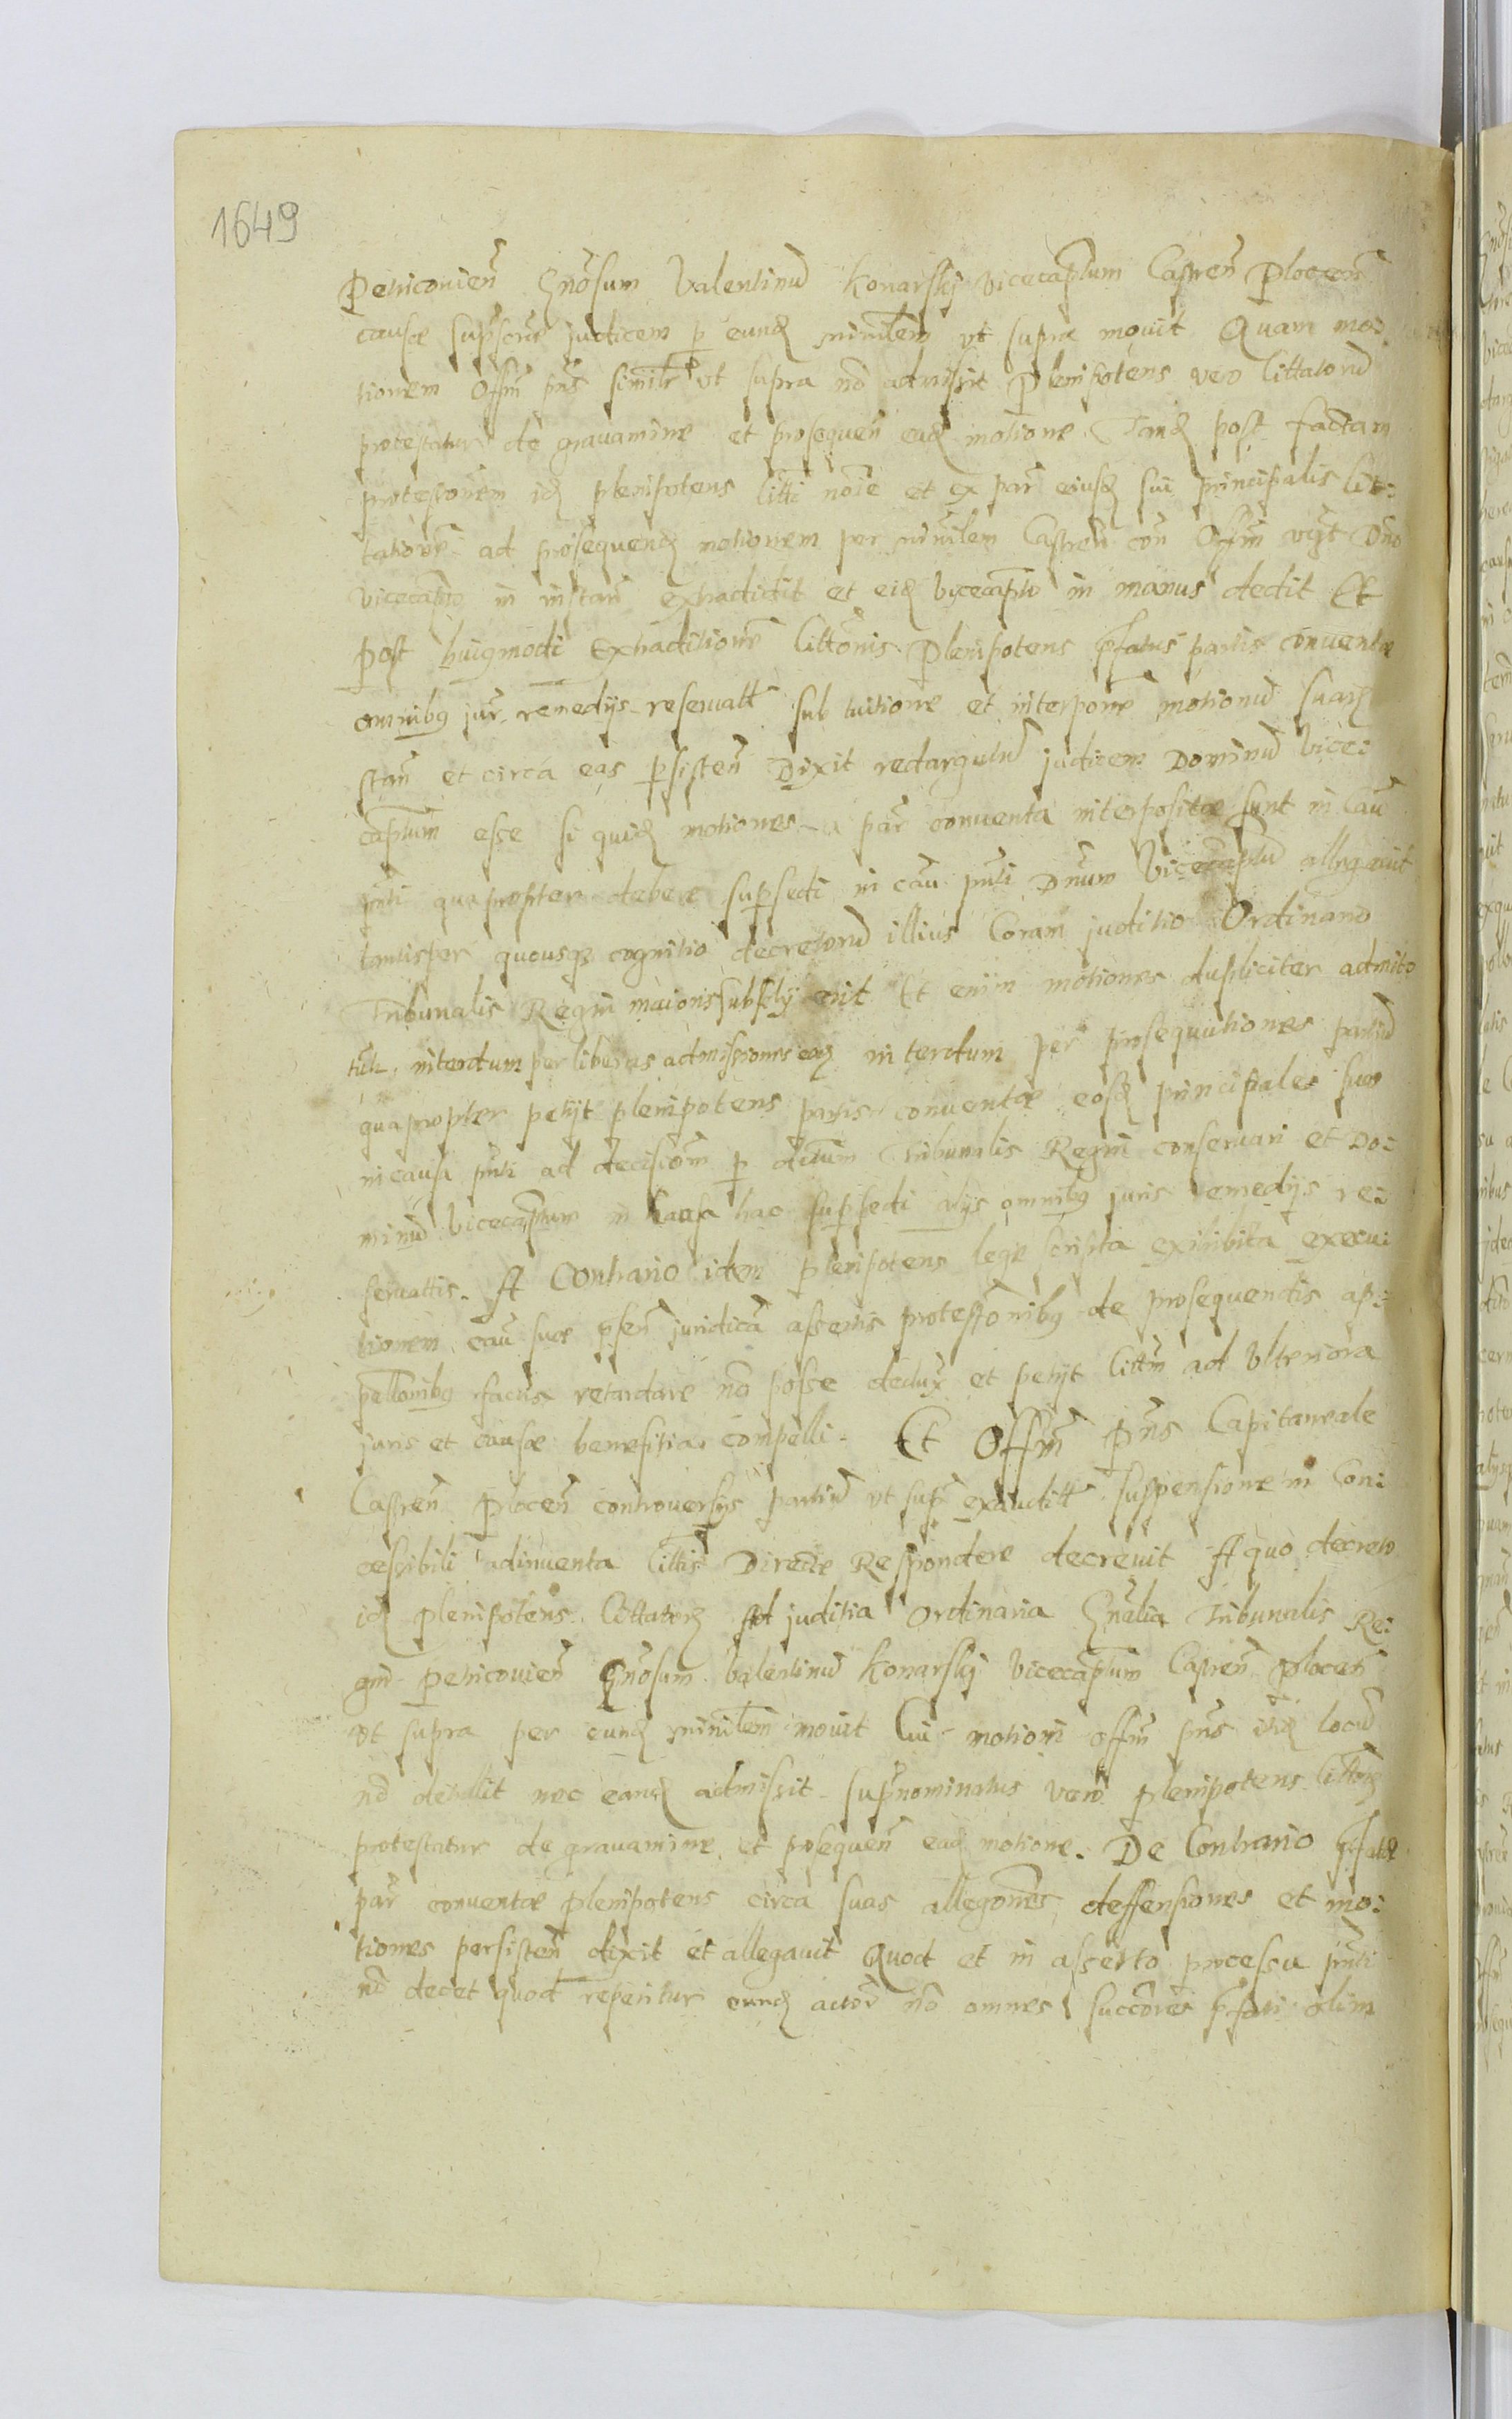 1649
Petricouien̄ Gn̄osum Valentinū Konarskj vicecap̄tum Castren̄ Plocen̄
causæ supscrip̄ judicem p eund minr̄lem vt supra mouit Quam mo-
tionem Offm̄ pn̄s similr̄ vt supra nō admisit Plenipotens vero Cittatorū
protestatur de grauamine et prosequen̄ ead motione. Tand post factam
protestōnem id plenipotens Citti noīe et ex par̄ eiusd sui principalis Cit-
tationē ad prosequend motionem per minr̄lem Castren̄ con̄ Offm̄ Dn̄o
Vicecap̄to in instan̄ extradidit et eid vicecap̄to in manus dedit Et
post huiqmodi Extraditionē Cittōnis Plenipotens p̄fatus partis conuentæ
omnibq jur̄ remedijs reseruatt sub tuitione et interpone motionū suar
stan̄ et circa eas psisten̄ Dixit redargutū judicem Dominū Vice-
cap̄tum esse si quid motiones a par̄ conuenta interpositæ sunt in cau
pn̄ti quapropter debere supsedi in cau pn̄ti Dn̄um Vicecap̄tū allegauit
tantisper quousq cognitio decretorū illius Coram juditio Ordinario
Tribunalis Regni maioris subselij erit Et enim motiones dupliciter admito
tūt. interdum per liberas admissiones ear interdum per prosequutiones partiū
quapropter petijt plenipotens partis conuentæ eosd principales suos
in causa pn̄ti ad decisiōm p dictum Tribunalis Regni conseruari et Do-
minū vicecap̄tum in Causa hac supsedi alijs omnibq juris remedijs re-
seruattis. A Contrario idem plenipotens lege scripta exihibita execu-
tionem cau suæ psen̄ juridica assertis protestōnibq de prosequendis ap-
pellōnibq factis retardare nō posse dedux̄ et petijt Cittm̄ ad Vlteriora
juris et causæ benefitia compelli. Et Offm̄ Pn̄s Capitaneale
Castren̄ Plocen̄ controuersijs partiū vt sup̄ exauditt suspensione in Con-
cessibili adinuenta Cittis Directe Respondere decreuit A quo decreto
id plenipotens Cittator Ad juditia Ordinaria Gn̄alia Tribunalis Re-
gni Petricouien̄ Gn̄osum Valentinū Konarskj Vicecap̄tum Castren̄ Plocen̄
vt supra per eund minr̄lem mouit Cui motioni offm̄ pn̄s itid locū
nō detullit nec eand admissit supnominatus vero plenipotens Cittor
protestatur de grauamine et prosequen̄ ead motione. De Contrario p̄fatæ
par̄ conuentæ plenipotens circa suas allegōnes deffensiones et mo-
tiones persisten̄ dixit et allegauit Quod et in asserto processu pn̄ti
nō decet quod reperitur eund actor̄ nō omnes succōres p̄fati olim